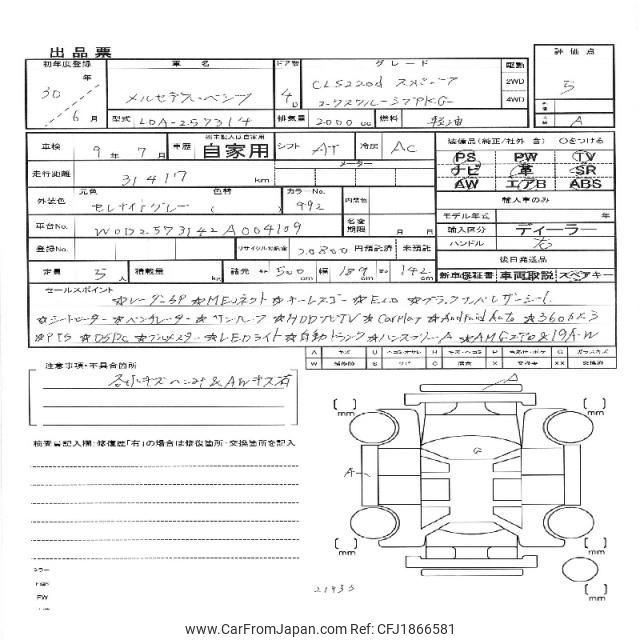 出品票
初年度登録 車名 ドア数 グレード 駆動 評価点
30年 メルセデス・ベンツ 4D CLS220d スポーツ 2WD 5
6月 エクスクルーシブPKG 4WD
型式 LDA-257314 排気量 2000cc 燃料 軽油 A
車検 9年7月 車歴 自家用 シフト AT 冷房 AC
装備品(純正/社外 含) ○をつける
PS PW TV
走行距離 31417 km メーター
ナビ 革 SR
AW エアB ABS
外装色 元色 セレナイトグレー 色替 ( カラーNo. 992 内装色
輸入車のみ
モデル年式 年
車台No. WDD2573142A004109 名変期限 月 日
輸入区分 ディーラー
ハンドル 右
登録No. リサイクル預託金 20800 円預託済 未預託
後日発送品
定員 5人 積載量 kg 諸元 長 500cm 幅 189cm 高 142cm
新車保証書 車両取説 スペアキー
セールスポイント
☆レーダーSP ☆MEコネクト ☆キーレスゴー ☆Eco ☆ブラックナッパレザーシート
☆シートヒーター ☆ベンチレーター ☆サンルーフ ☆HDDナビTV ☆CarPlay ☆Android Auto ☆360°カメラ
☆PTS ☆DSRC ☆ブルメスター ☆LEDライト ☆自動トランク ☆ハンズフリーA ☆AMGエアロ&19A・W
注意事項・不具合箇所
各小キズヘコミ&AWキズ有
検査員記入欄:修復歴「有」の場合は修復箇所・交換箇所を記入
A
A
G
[ ] mm
[ ] mm
[ ] mm
[ ] mm
[ ] mm
21433
www.CarFromJapan.com Ref:CFJ1866581